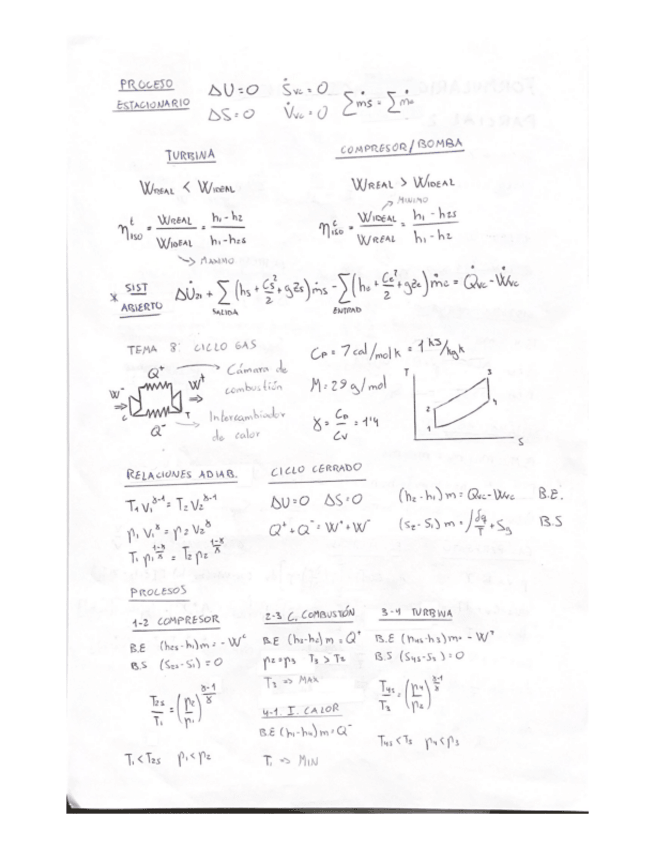 PROCESO ESTACIONARIO
ΔU=0 Ṡvc=0 Σṁs=Σṁe
ΔS=0 V̇vc=0
TURBINA
WREAL < WIDEAL
ηᵗiso = WREAL/WIDEAL = (h1-h2)/(h1-h2s)
MAXIMO
COMPRESOR/BOMBA
WREAL > WIDEAL
MINIMO
ηᶜiso = WIDEAL/WREAL = (h1-h2s)/(h1-h2)
* SIST ABIERTO ΔU̇21 + Σ(hs + Cs²/2 + gzs)ṁs - Σ(he + Ce²/2 + gze)ṁe = Q̇vc - Ẇvc
SALIDA ENTRAD
TEMA 8: CICLO GAS
Q⁺ Cámara de combustión
W⁻ W⁺
C T
Q⁻ Intercambiador de calor
Cp = 7 cal/mol K = 1 kJ/kg K
M = 29 g/mol
γ = Cp/Cv = 1'4
T
3
2
4
1
S
RELACIONES ADIAB.
T1 V1^(γ-1) = T2 V2^(γ-1)
p1 V1^γ = p2 V2^γ
T1 p1^((1-γ)/γ) = T2 p2^((1-γ)/γ)
CICLO CERRADO
ΔU=0 ΔS=0
Q⁺+Q⁻=W⁺+W⁻
(h2-h1)m = Qvc-Wvc B.E.
(s2-s1)m = ∫δq/T + Sg B.S
PROCESOS
1-2 COMPRESOR
B.E (h2s-h1)m = -Wᶜ
B.S (S2s-S1)=0
T2s/T1 = (p2/p1)^((γ-1)/γ)
T1<T2s p1<p2
2-3 C. COMBUSTÓN
B.E (h3-h2)m = Q⁺
p2=p3 T3 > T2
T3 => MAX
4-1. I. CALOR
B.E (h1-h4)m = Q⁻
T1 => MIN
3-4 TURBINA
B.S (S4s-S3)=0
T4s<T3 p4<p3